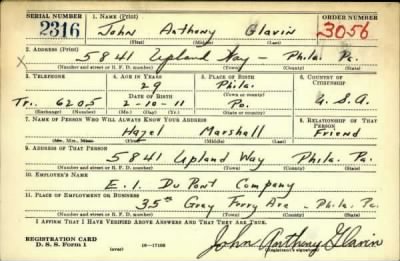 SERIAL NUMBER 1. NAME (Print) ORDER NUMBER
2316 John Anthony Glavin 3056
(First) (Middle) (Last)
2. ADDRESS (Print)
5841 Upland Way - Phila. Pa.
(Number and street or R. F. D. number) (Town) (County) (State)
3. TELEPHONE 4. AGE IN YEARS 5. PLACE OF BIRTH 6. COUNTRY OF CITIZENSHIP
29 Phila.
DATE OF BIRTH (Town or county)
Tr. 6205 2-10-11 Pa. U.S.A.
(Exchange) (Number) (Mo.) (Day) (Yr.) (State or country)
7. NAME OF PERSON WHO WILL ALWAYS KNOW YOUR ADDRESS 8. RELATIONSHIP OF THAT PERSON
Hazel Marshall Friend
(Mr., Mrs., Miss) (First) (Middle) (Last)
9. ADDRESS OF THAT PERSON
5841 Upland Way Phila. Pa.
(Number and street or R. F. D. number) (Town) (County) (State)
10. EMPLOYER'S NAME
E. I. Du Pont Company
11. PLACE OF EMPLOYMENT OR BUSINESS
35th Gray Ferry Ave - Phila. Pa.
(Number and street or R. F. D. number) (Town) (County) (State)
I AFFIRM THAT I HAVE VERIFIED ABOVE ANSWERS AND THAT THEY ARE TRUE.
REGISTRATION CARD
D. S. S. Form 1 (over) 16-17105 John Anthony Glavin